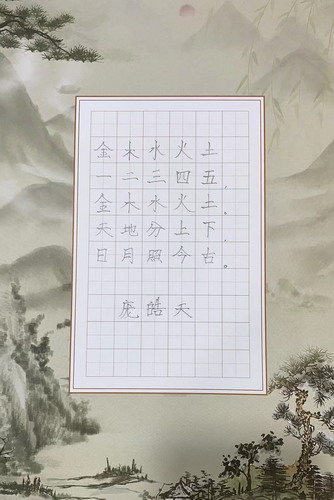 金木水火土
一二三四五，
金木水火土。
天地分上下，
日月照今古。
庞皓天